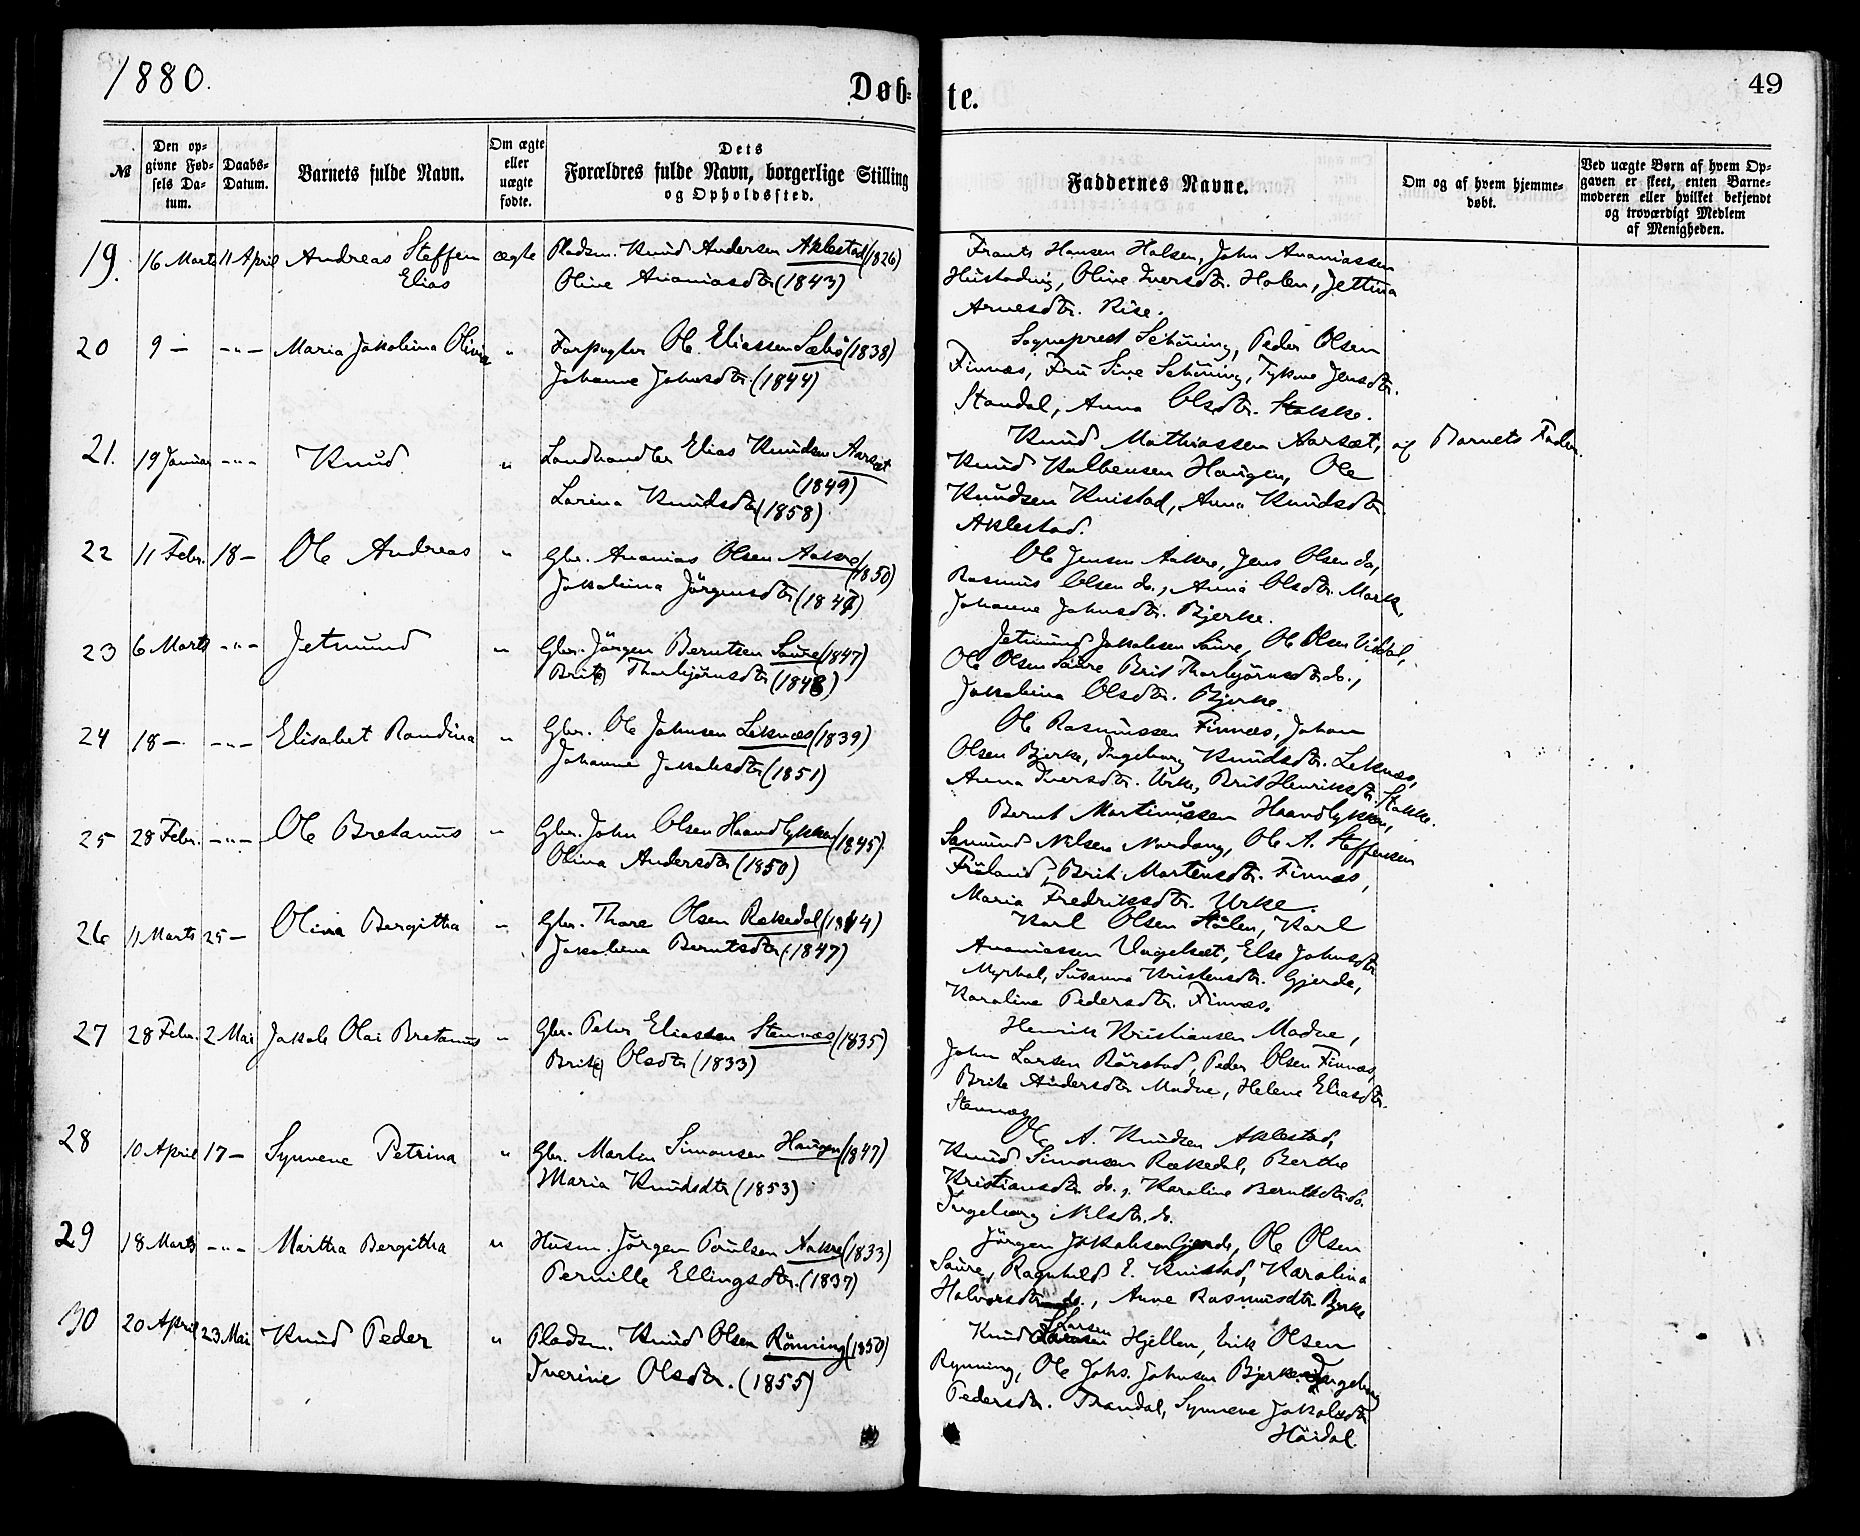 1880.
Døb-
te.
49
№
Den op-
givne Fød-
sels Da-
tum.
Daabs-
Datum.
Barnets fulde Navn.
Om ægte
eller
uægte
fødte.
Dets
Forældres fulde Navn, borgerlige Stilling
og Opholdssted.
Faddernes Navne.
Om og af hvem hjemme-
døbt.
Ved uægte Børn af hvem Op-
gaven er skeet, enten Barne-
moderen eller hvilket bekjendt
og troværdigt Medlem
af Menigheden.
19. 16 Marts 11 April Andreas Steffen ægte Pladsm. Knud Andersen Aklestad (1826)
Elias Oline Ananiasdtr (1843)
Frants Hansen Holsen, John Ananiassen
Hustadvig, Oline Iversdtr. Holen, Jettina
Arnesdtr. Rise.
20 9 — -„- Maria Jakobina Olivia „ Forpagter Ole Eliassen Sæbø (1838)
Johanne Johnsdtr. (1844)
Sogneprest Schöning, Peder Olsen
Finnæs, Fru Sine Schöning, Jensdtr.
Standal, Anna Olsdtr. Stokke.
21. 19 Januar -„- Knud „ Landhandler Elias Knudsen Aarsæt
(1849)
Larina Knudsdtr (1858)
Knud Mathiassen Aarsæt, af Barnets Fader.
Knud Haugen, Ole
Knudsen Knistad, Anna Knudsdtr
Aklestad.
22 11 Febr. 18 — Ole Andreas „ Gbr. Ananias Olsen Aakre (1850)
Jakobina Jörgensdtr (1847)
Ole Jensen Aakre, Jens Olsen do,
Rasmus Olsen do., Anna Olsdtr. Mork,
Johanne Johnsdtr. Bjerke.
23 6 Marts -„- Jetmund „ Gbr. Jörgen Berntsen Saure (1847)
Brit(e) Thorbjörnsdtr (1848)
Jetmund Jakobsen Saure, Ole Olsen Viddal,
Ole Olsen Saure Brit Thorbjörnsdtr do.,
Jakobina Olsdtr. Bjerke.
24 18 — -„- Elisabet Randina „ Gbr. Ole Johnsen Leknæs (1839)
Johanne Jakobsdtr (1851)
Ole Rasmussen Finnæs, Johan
Olsen Bjerke, Ingeborg Knudsdtr. Leknæs,
Anna Iversdtr. Urke, Brit Henriksdtr. Stokke.
25 28 Febr. -„- Ole Bretanus „ Gbr. John Olsen Haandlykken (1845)
Olina Andersdtr (1850)
Bernt Martinussen Haandlykken,
Samund Nilsen Nordang, Ole A. Steffensen
Frøland, Brit Martensdtr. Finnæs,
Maria Fredriksdtr. Urke.
26 11 Marts 25 — Olina Bergitha „ Gbr. Thore Olsen Rekedal (1844)
Jakobina Berntsdtr (1847)
Karl Olsen Hólen, Karl
Ananiassen Ungelsæt, Else Johnsdtr
Myrhol, Susanna Kristensdtr. Gjerde,
Karoline Pedersdtr. Finnæs.
27 28 Febr. 2 Mai Jakob Olai Bretanus „ Gbr. Peter Eliassen Stennæs (1835)
Brit(e) Olsdtr (1833)
Henrik Kristiansen Madve,
John Larsen Rörstad, Peder Olsen Finnæs,
Brite Andersdtr Madve, Helene Eliasdtr.
Stennæs
28 10 April 17 — Synneve Petrina „ Gbr. Martin Simonsen Haugen (1847)
Maria Knudsdtr (1853)
Ole A. Knudsen Aklestad,
Knud Simonsen Rekedal, Berthe
Kristiansdtr do., Karoline Berntsdtr do.
Ingeborg Nilsdtr. do.
29 18 Marts -„- Martha Bergitha „ Husm. Jörgen Poulsen Aakre (1833)
Pernille Ellingsdtr. (1837)
Jörgen Jakobsen Gjerde, Ole Olsen
Saure, Ragnhild E. Knistad, Karolina
Halvorsdtr do., Anne Rasmusdtr. Bjerke
30 20 April 23 Mai Knud Peder „ Pladsm. Knud Olsen Rönning (1850)
Iverine Olsdtr. (1855)
Knud Larsen Hjellen, Erik Olsen
Rynning, Ole Johs. Johnsen Bjerke, Ingeborg
Pedersdtr. Trandal, Synneve Jakobsdtr
Höidal.